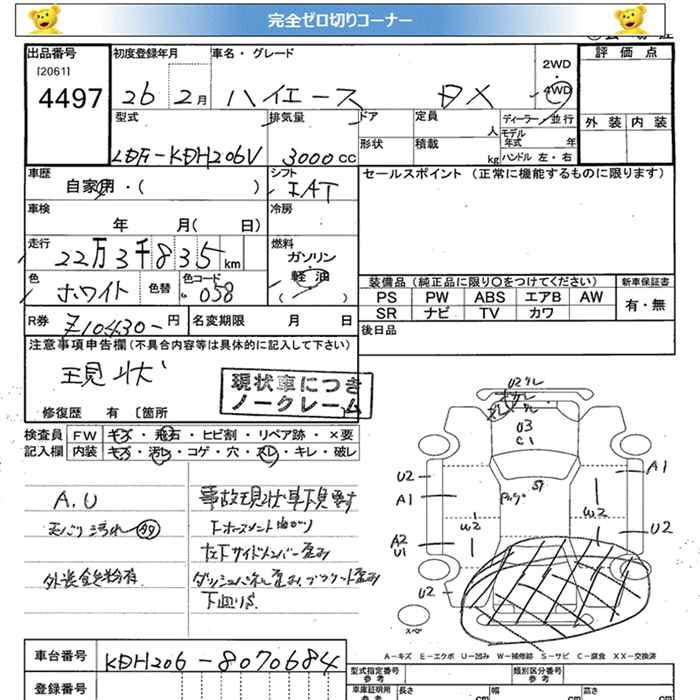 完全ゼロ切りコーナー
出品番号
[2061]
4497
初度登録年月
26 2月
車名・グレード
ハイエース DX
2WD
4WD
評価点
外装 内装
型式
LDF-KDH206V
排気量
3000cc
ドア
形状
定員
人
積載
kg
ディーラー/並行
モデル年式 年
ハンドル 左・右
車歴
自家用・( )
シフト
IAT
セールスポイント (正常に機能するものに限ります)
車検
年 月( 日)
冷房
走行
22万3千835km
燃料
ガソリン
軽油
( )
色
ホワイト
色替
色コード
058
装備品 (純正品に限り〇をつけてください)
新車保証書
PS PW ABS エアB AW
SR ナビ TV カワ
有・無
R券
10430-円
名変期限 月 日
後日品
注意事項申告欄(不具合内容等は具体的に記入して下さい)
現状
現状車につき
ノークレーム
修復歴 有 〔箇所
検査員
記入欄
FW キズ・飛石・ヒビ割・リペア跡・×要
内装 キズ・汚レ・コゲ・穴・スレ・キレ・破レ
A.U
事故現状車下見要す
左下サイドメンバー歪み
U2
A1
A2
U1
W2
U3
C1
A1
W2
U2
U2
スペア
A-キズ E-エクボ U-凹み W-補修跡 S-サビ C-腐食 XX-交換済
車台番号
KDH206-8070684
登録番号
型式指定番号
参考
類別区分番号
参考
車庫証明用
参考
長さ
cm
幅
cm
高さ
cm